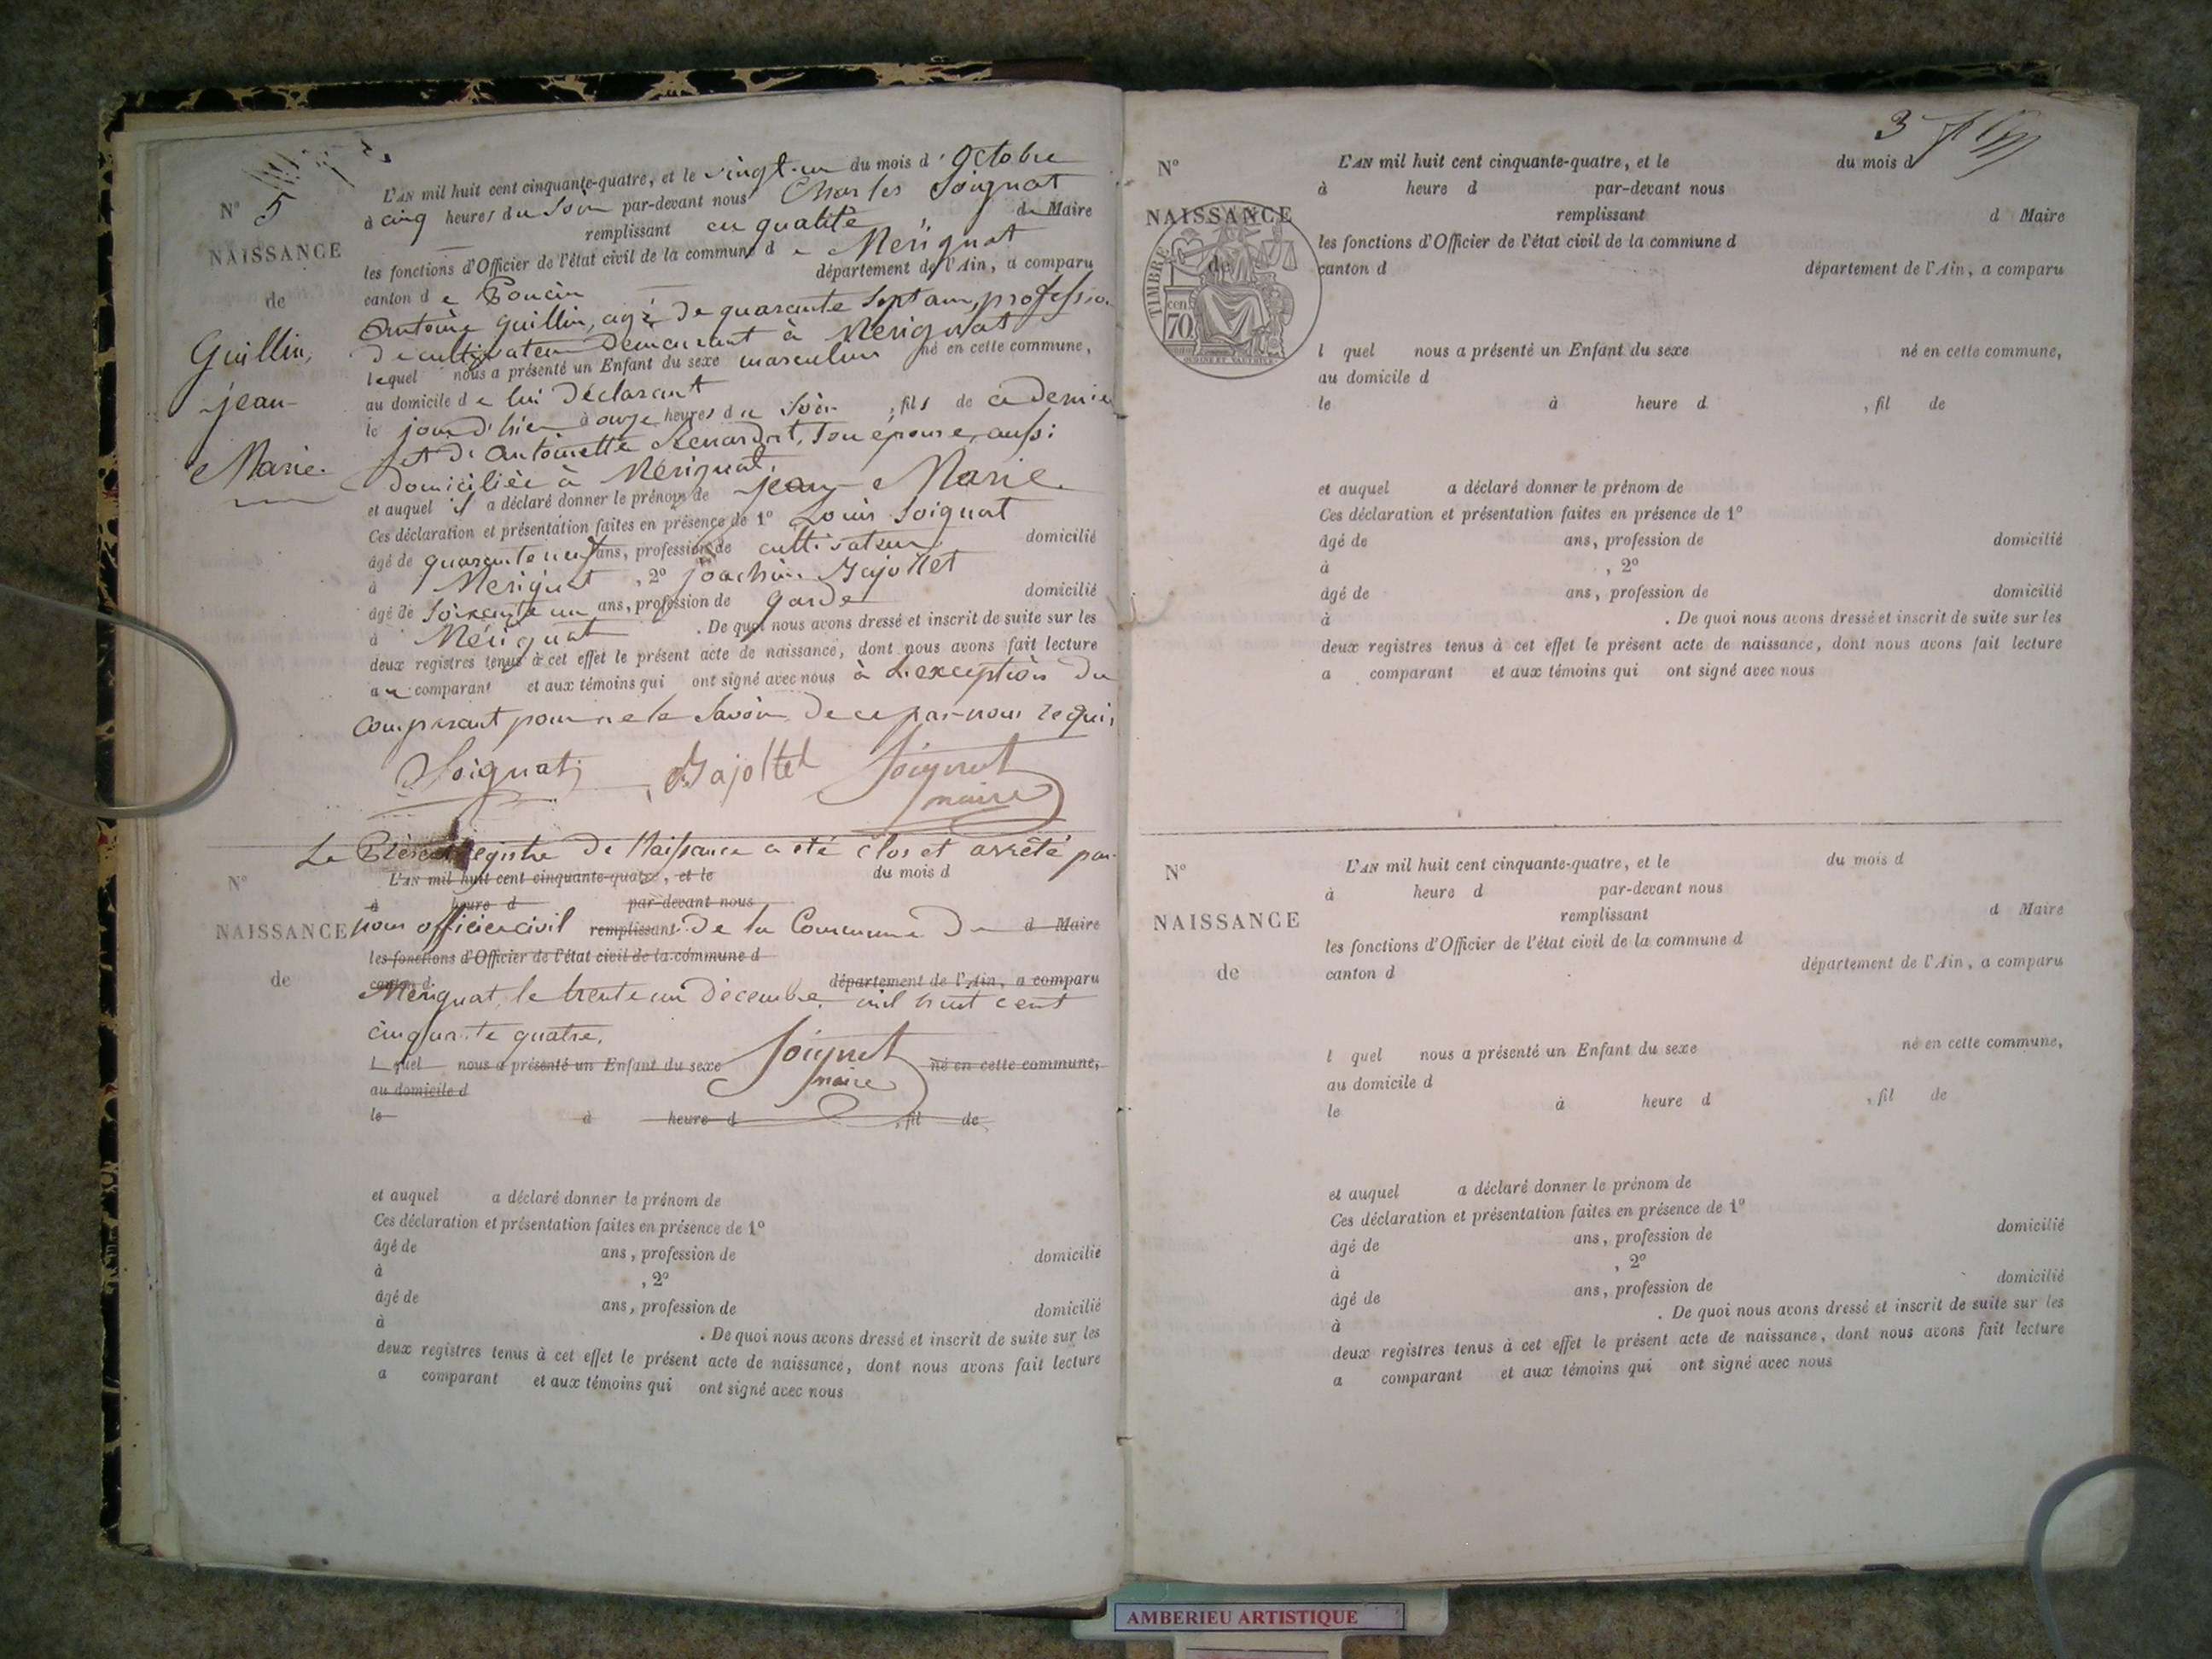 N° 5
NAISSANCE
de
Guillin,
jean-
Marie.
L'AN mil huit cent cinquante-quatre, et le vingt-un du mois d'Octobre
à cinq heures du Soir par-devant nous Charles Soignat
remplissant en qualité de Maire
les fonctions d'Officier de l'état civil de la commune de Mérignat
canton de Poncin département de l'Ain, a comparu
Antoine Guillin, agé de quarante Sept ans, profession
de cultivateur demeurant à Mérignat
lequel nous a présenté un Enfant du sexe masculin né en cette commune,
au domicile de lui Déclarant
le jour d'hier à onze heures du Soir, fils de ce dernier
et de Antoinette Renardat, Son épouse, aussi
domiciliée à Mérignat.
et auquel il a déclaré donner le prénom de jean Marie.
Ces déclaration et présentation faites en présence de 1° Louis Soignat
âgé de quarante neuf ans, profession de cultivateur, domicilié
à Mérignat, 2° joachim Gajottet
âgé de Soixante un ans, profession de garde domicilié
à Mérignat. De quoi nous avons dressé et inscrit de suite sur les
deux registres tenus à cet effet le présent acte de naissance, dont nous avons fait lecture
au comparant et aux témoins qui ont signé avec nous à L'exception du
comparant pour ne le Savoir de ce par nous requis
Soignat Gajottet Soignat
maire
Le Présent registre de Naissance a été clos et arrêté par
N°
L'AN mil huit cent cinquante-quatre, et le du mois d
à heure d par-devant nous
NAISSANCE
nous officier civil remplissant de la Commune de d Maire
les fonctions d'Officier de l'état civil de la commune d
de
canton d département de l'Ain, a comparu
Mérignat, le trente un décembre mil huit cent
cinquante quatre.
l quel nous a présenté un Enfant du sexe né en cette commune,
Soignat
maire
au domicile d
le à heure d , fil de
et auquel a déclaré donner le prénom de
Ces déclaration et présentation faites en présence de 1°
âgé de ans, profession de domicilié
à , 2°
âgé de ans, profession de domicilié
à . De quoi nous avons dressé et inscrit de suite sur les
deux registres tenus à cet effet le présent acte de naissance, dont nous avons fait lecture
a comparant et aux témoins qui ont signé avec nous
3
N°
L'AN mil huit cent cinquante-quatre, et le du mois d
à heure d par-devant nous
NAISSANCE
remplissant d Maire
les fonctions d'Officier de l'état civil de la commune d
de
canton d département de l'Ain, a comparu
TIMBRE
70 cen
l quel nous a présenté un Enfant du sexe né en cette commune,
au domicile d
le à heure d , fil de
et auquel a déclaré donner le prénom de
Ces déclaration et présentation faites en présence de 1°
âgé de ans, profession de domicilié
à , 2°
âgé de ans, profession de domicilié
à . De quoi nous avons dressé et inscrit de suite sur les
deux registres tenus à cet effet le présent acte de naissance, dont nous avons fait lecture
a comparant et aux témoins qui ont signé avec nous
N°
L'AN mil huit cent cinquante-quatre, et le du mois d
à heure d par-devant nous
NAISSANCE
remplissant d Maire
les fonctions d'Officier de l'état civil de la commune d
de
canton d département de l'Ain, a comparu
l quel nous a présenté un Enfant du sexe né en cette commune,
au domicile d
le à heure d , fil de
et auquel a déclaré donner le prénom de
Ces déclaration et présentation faites en présence de 1°
âgé de ans, profession de domicilié
à , 2°
âgé de ans, profession de domicilié
à . De quoi nous avons dressé et inscrit de suite sur les
deux registres tenus à cet effet le présent acte de naissance, dont nous avons fait lecture
a comparant et aux témoins qui ont signé avec nous
AMBERIEU ARTISTIQUE